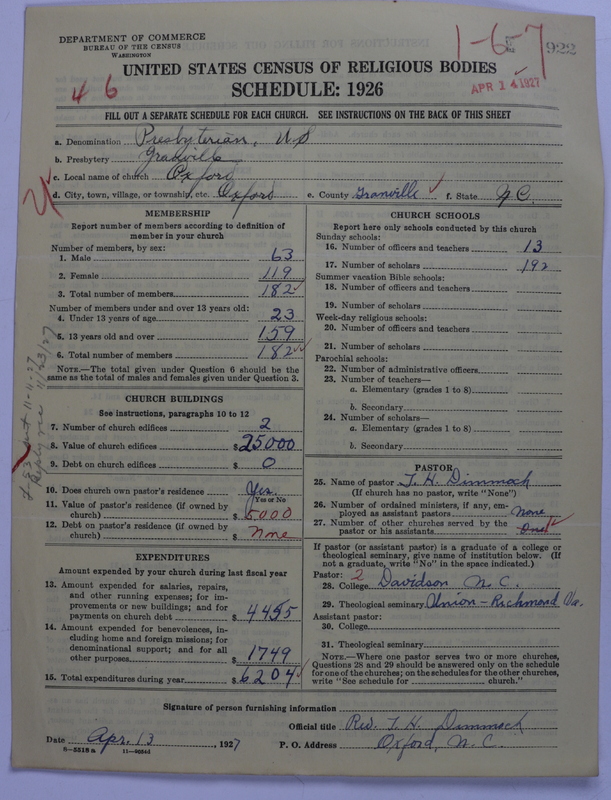 DEPARTMENT OF COMMERCE
BUREAU OF THE CENSUS
WASHINGTON
1-6-7
922
4 6
APR 14 1927
UNITED STATES CENSUS OF RELIGIOUS BODIES
SCHEDULE: 1926
FILL OUT A SEPARATE SCHEDULE FOR EACH CHURCH. SEE INSTRUCTIONS ON THE BACK OF THIS SHEET
a. Denomination Presbyterian, U S
b. Presbytery Granville
c. Local name of church Oxford
d. City, town, village, or township, etc. Oxford e. County Granville f. State N.C.
MEMBERSHIP
Report number of members according to definition of
member in your church
Number of members, by sex:
1. Male 63
2. Female 119
3. Total number of members 182
Number of members under and over 13 years old:
4. Under 13 years of age 23
5. 13 years old and over 159
6. Total number of members 182
NOTE.—The total given under Question 6 should be the
same as the total of males and females given under Question 3.
CHURCH BUILDINGS
See instructions, paragraphs 10 to 12
7. Number of church edifices 2
8. Value of church edifices $25000
9. Debt on church edifices $0
10. Does church own pastor's residence Yes.
Yes or No
11. Value of pastor's residence (if owned by
church) $5000
12. Debt on pastor's residence (if owned by
church) $none
EXPENDITURES
Amount expended by your church during last fiscal year
13. Amount expended for salaries, repairs,
and other running expenses; for im-
provements or new buildings; and for
payments on church debt $4455
14. Amount expended for benevolences, in-
cluding home and foreign missions; for
denominational support; and for all
other purposes $1749
15. Total expenditures during year $6204
CHURCH SCHOOLS
Report here only schools conducted by this church
Sunday schools:
16. Number of officers and teachers 13
17. Number of scholars 192
Summer vacation Bible schools:
18. Number of officers and teachers
19. Number of scholars
Week-day religious schools:
20. Number of officers and teachers
21. Number of scholars
Parochial schools:
22. Number of administrative officers
23. Number of teachers—
a. Elementary (grades 1 to 8)
b. Secondary
24. Number of scholars—
a. Elementary (grades 1 to 8)
b. Secondary
PASTOR
25. Name of pastor T. H. Dimmock
(If church has no pastor, write "None")
26. Number of ordained ministers, if any, em-
ployed as assistant pastors None
27. Number of other churches served by the
pastor or his assistants One
If pastor (or assistant pastor) is a graduate of a college or
theological seminary, give name of institution below. (If
not a graduate, write "No" in the space indicated.)
Pastor: 2
28. College Davidson N. C.
29. Theological seminary Union - Richmond Va.
Assistant pastor:
30. College
31. Theological seminary
NOTE.—Where one pastor serves two or more churches,
Questions 28 and 29 should be answered only on the schedule
for one of the churches; on the schedules for the other churches,
write "See schedule for church."
Signature of person furnishing information
Official title Rev. T. H. Dimmock
Date Apr. 13, 1927 P. O. Address Oxford, N. C.
8-5518 a